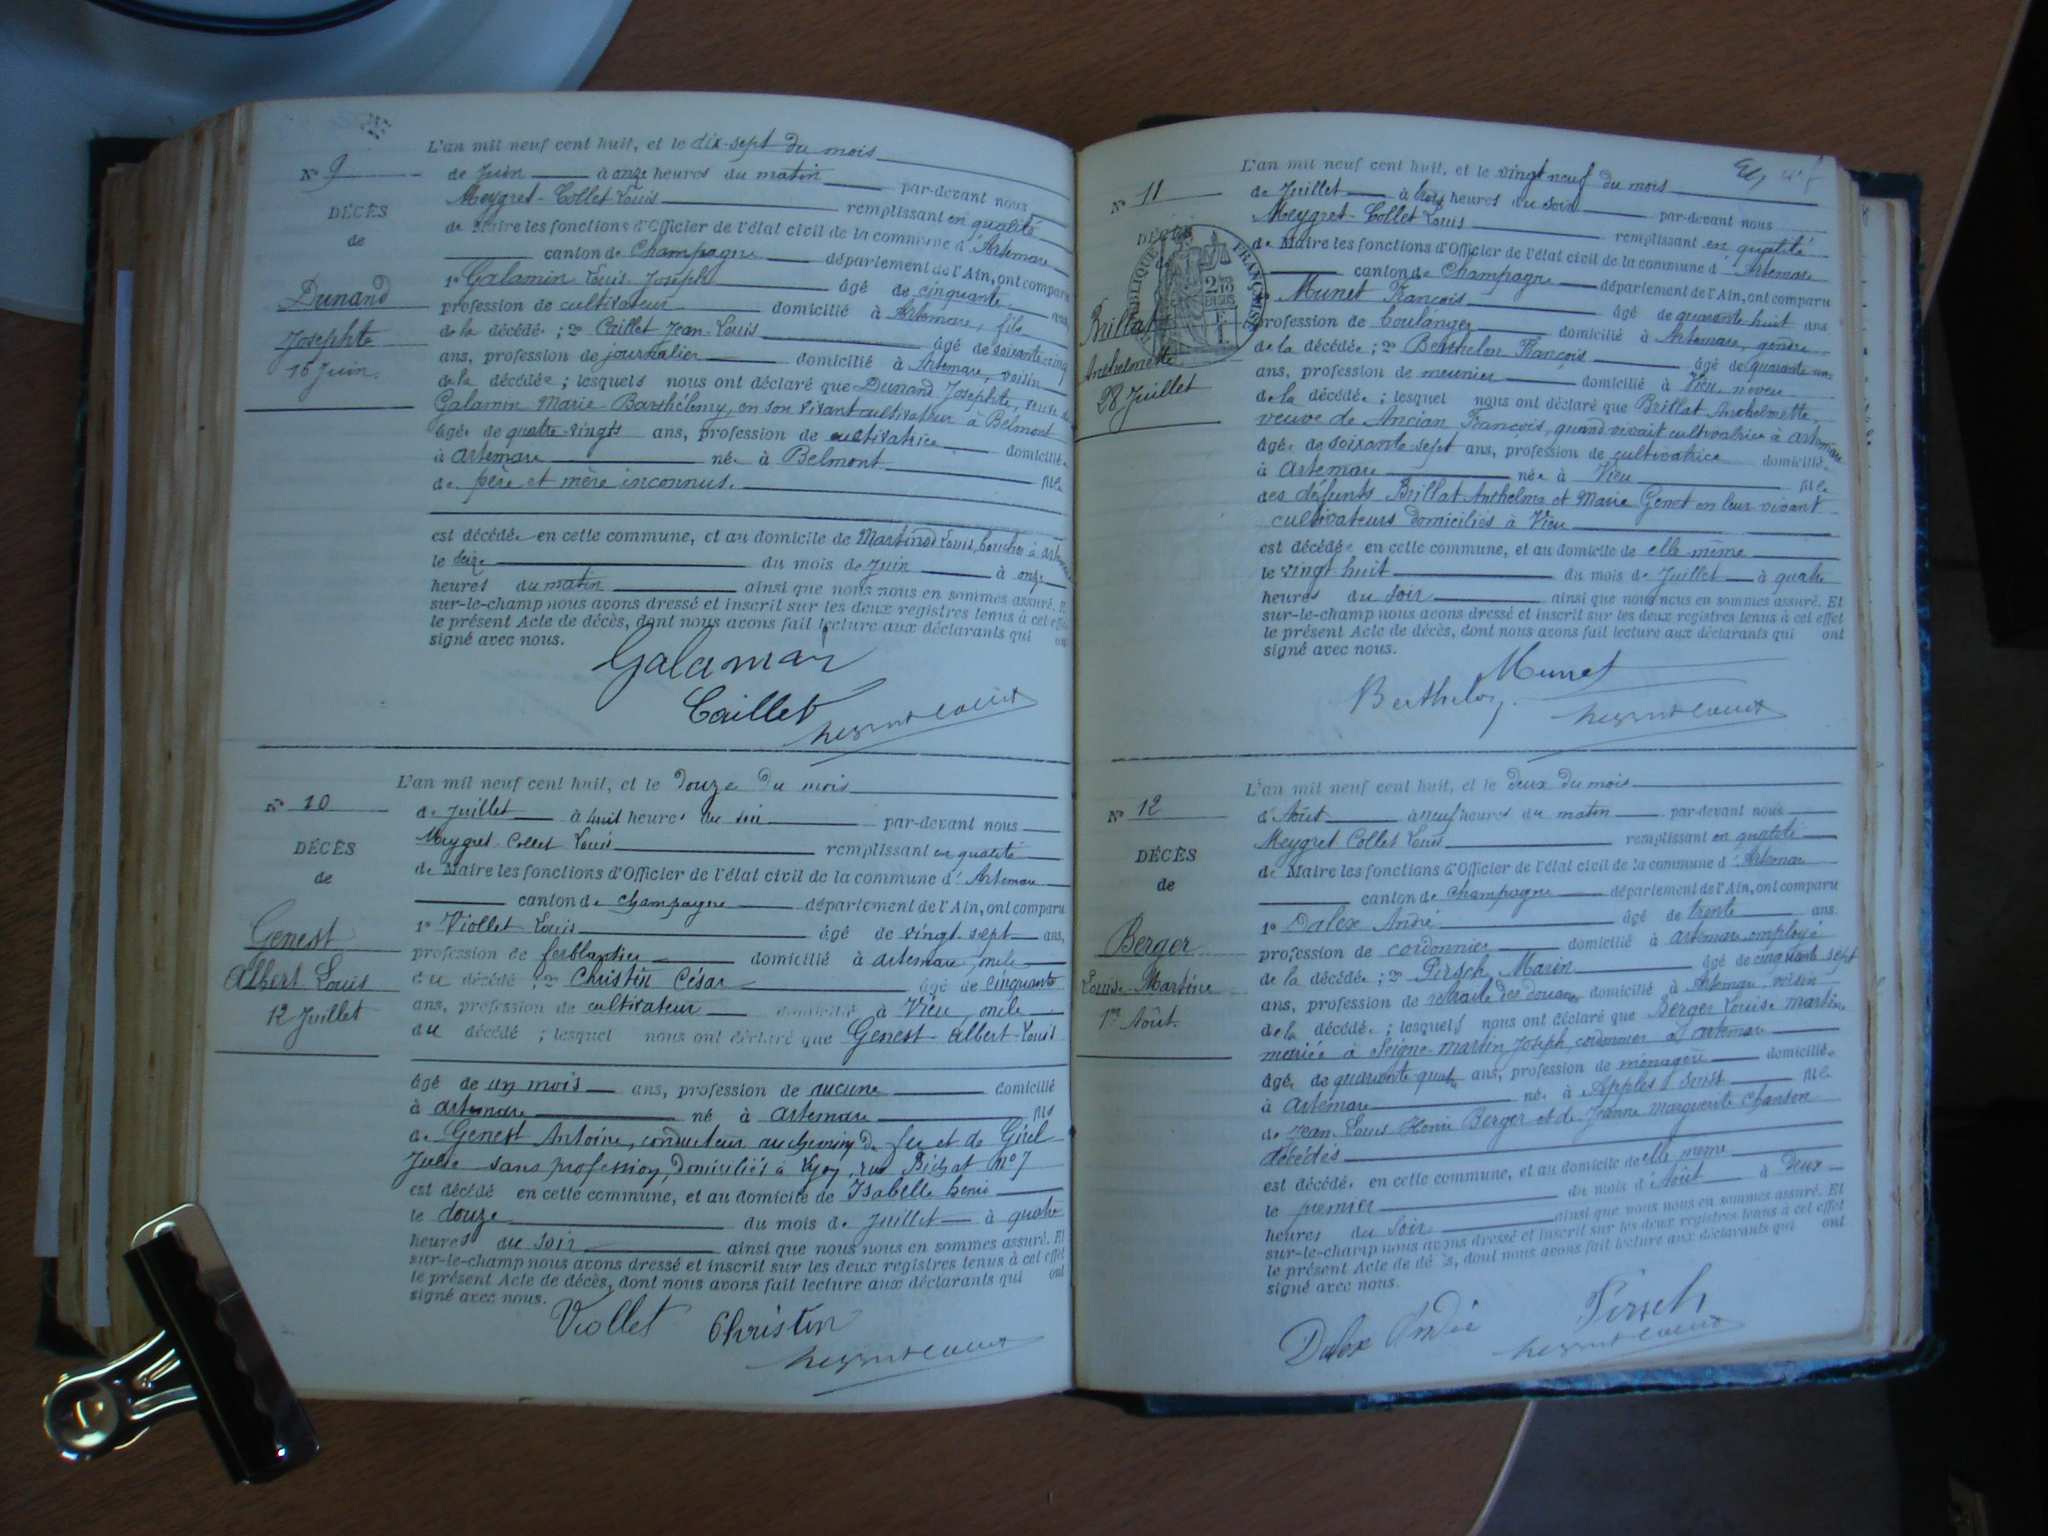 L'an mil neuf cent huit, et le dix-sept du mois
N° 9
de Juin à onze heures du matin par-devant nous
Meygret-Collet Louis remplissant en qualité
DÉCÈS
de Maire les fonctions d'Officier de l'état civil de la commune d'Artemare
de
canton de Champagne département de l'Ain, ont comparu
Dunand
1° Galamin Louis Joseph âgé de cinquante ans,
profession de cultivateur domicilié à Artemare, fils
Josephte
de la décédée ; 2° Caillet Jean-Louis âgé de soixante-cinq
16 Juin.
ans, profession de journalier domicilié à Artemare, voisin
de la décédée ; lesquels nous ont déclaré que Dunand Josephte, veuve de
Galamin Marie Barthélemy, en son vivant cultivateur à Belmont
âgée de quatre-vingts ans, profession de cultivatrice domiciliée
à Artemare née à Belmont fille
de père et mère inconnus.
est décédée en cette commune, et au domicile de Martinod Louis, boucher à Artemare
le seize du mois de Juin à onze
heures du matin ainsi que nous nous en sommes assuré. Et
sur-le-champ nous avons dressé et inscrit sur les deux registres tenus à cet effet
le présent Acte de décès, dont nous avons fait lecture aux déclarants qui ont
signé avec nous.
Galamin
Caillet
L'an mil neuf cent huit, et le douze du mois
N° 10
de Juillet à huit heures du soir par-devant nous
Meygret-Collet Louis remplissant en qualité
DÉCÈS
de Maire les fonctions d'Officier de l'état civil de la commune d'Artemare
de
canton de Champagne département de l'Ain, ont comparu
Genest
1° Viollet Louis âgé de vingt-sept ans,
profession de ferblantier domicilié à Artemare, oncle
Albert Louis
du décédé ; 2° Christin César âgé de cinquante
12 Juillet
ans, profession de cultivateur domicilié à Vieu, oncle
du décédé ; lesquel nous ont déclaré que Genest Albert-Louis
âgé de un mois ans, profession de aucune domicilié
à Artemare né à Artemare fils
de Genest Antoine, conducteur au chemin de fer et de Girel
Julie sans profession, domiciliés à Lyon, rue Bichat n° 7
est décédé en cette commune, et au domicile de Isabelle Henri
le douze du mois de Juillet à quatre
heures du soir ainsi que nous nous en sommes assuré. Et
sur-le-champ nous avons dressé et inscrit sur les deux registres tenus à cet effet
le présent Acte de décès, dont nous avons fait lecture aux déclarants qui ont
signé avec nous.
Viollet Christin
L'an mil neuf cent huit, et le vingt neuf du mois
N° 11
de Juillet à trois heures du soir par-devant nous
Meygret-Collet Louis remplissant en qualité
DÉCÈS
de Maire les fonctions d'Officier de l'état civil de la commune d'Artemare
canton de Champagne département de l'Ain, ont comparu
Munet François âgé de quarante-huit ans
Brillat
profession de boulanger domicilié à Artemare, gendre
de la décédée ; 2° Berthelon François âgé de quarante-un
Anthelmette
ans, profession de meunier domicilié à Vieu, neveu
28 Juillet
de la décédée ; lesquel nous ont déclaré que Brillat Anthelmette,
veuve de Ancian François, quand vivait cultivatrice à Artemare
âgée de soixante-sept ans, profession de cultivatrice domiciliée
à Artemare née à Vieu fille
des défunts Brillat Anthelme et Marie Genet en leur vivant
cultivateurs domiciliés à Vieu
est décédée en cette commune, et au domicile de elle même
le vingt-huit du mois de Juillet à quatre
heures du soir ainsi que nous nous en sommes assuré. Et
sur-le-champ nous avons dressé et inscrit sur les deux registres tenus à cet effet
le présent Acte de décès, dont nous avons fait lecture aux déclarants qui ont
signé avec nous.
Munet
Berthelon
L'an mil neuf cent huit, et le deux du mois
N° 12
d'Août à neuf heures du matin par-devant nous
Meygret Collet Louis remplissant en qualité
DÉCÈS
de Maire les fonctions d'Officier de l'état civil de la commune d'Artemare
de
canton de Champagne département de l'Ain, ont comparu
1° Dalex André âgé de trente ans.
Berger
profession de cordonnier domicilié à Artemare employé
de la décédée ; 2° Pirsch Marin âgé de cinquante sept
Louise-Martine
ans, profession de retraité des douanes domicilié à Artemare voisin
1er Août.
de la décédée ; lesquels nous ont déclaré que Berger Louise Martine
mariée à Seigne-Martin Joseph, cordonnier à Artemare
âgée de quarante-quatre ans, profession de ménagère domiciliée
à Artemare née à Apples fille
de Jean Louis Henri Berger et de Jeanne Marguerite Chanson
décédés
est décédée en cette commune, et au domicile de elle même
le premier du mois d'Août à deux
heures du soir ainsi que nous nous en sommes assuré. Et
sur-le-champ nous avons dressé et inscrit sur les deux registres tenus à cet effet
le présent Acte de décès, dont nous avons fait lecture aux déclarants qui ont
signé avec nous.
Dalex André Pirsch